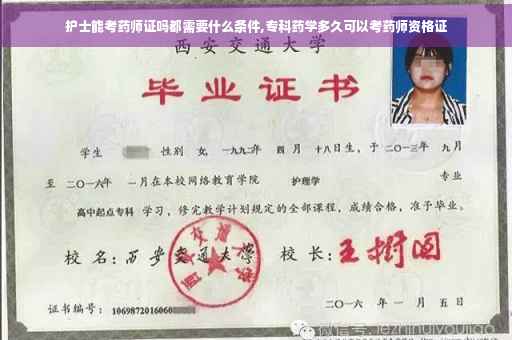 护士能考药师证吗都需要什么条件,专科药学多久可以考药师资格证
西安交通大学
毕业证书
学生 性别 女, 一九九二年 四月 十八日生, 于 二〇一三年 九月
至 二〇一六年 一月在本校网络教育学院 护理学 专业
高中起点专科 学习, 修完教学计划规定的全部课程, 成绩合格, 准予毕业。
校名: 西安交通大学 校长: 王树国
证书编号: 1069872016060
二〇一六年一月五日
微信号: jezhinuiyoujiao